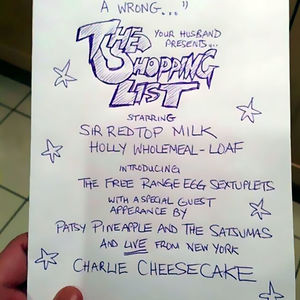 A WRONG..."
YOUR HUSBAND
PRESENTS...
THE
SHOPPING
LIST
STARRING
SIR REDTOP MILK
HOLLY WHOLEMEAL-LOAF
INTRODUCING
THE FREE RANGE EGG SEXTUPLETS
WITH A SPECIAL GUEST
APPERANCE BY
PATSY PINEAPPLE AND THE SATSUMAS
AND LIVE FROM NEW YORK
CHARLIE CHEESECAKE